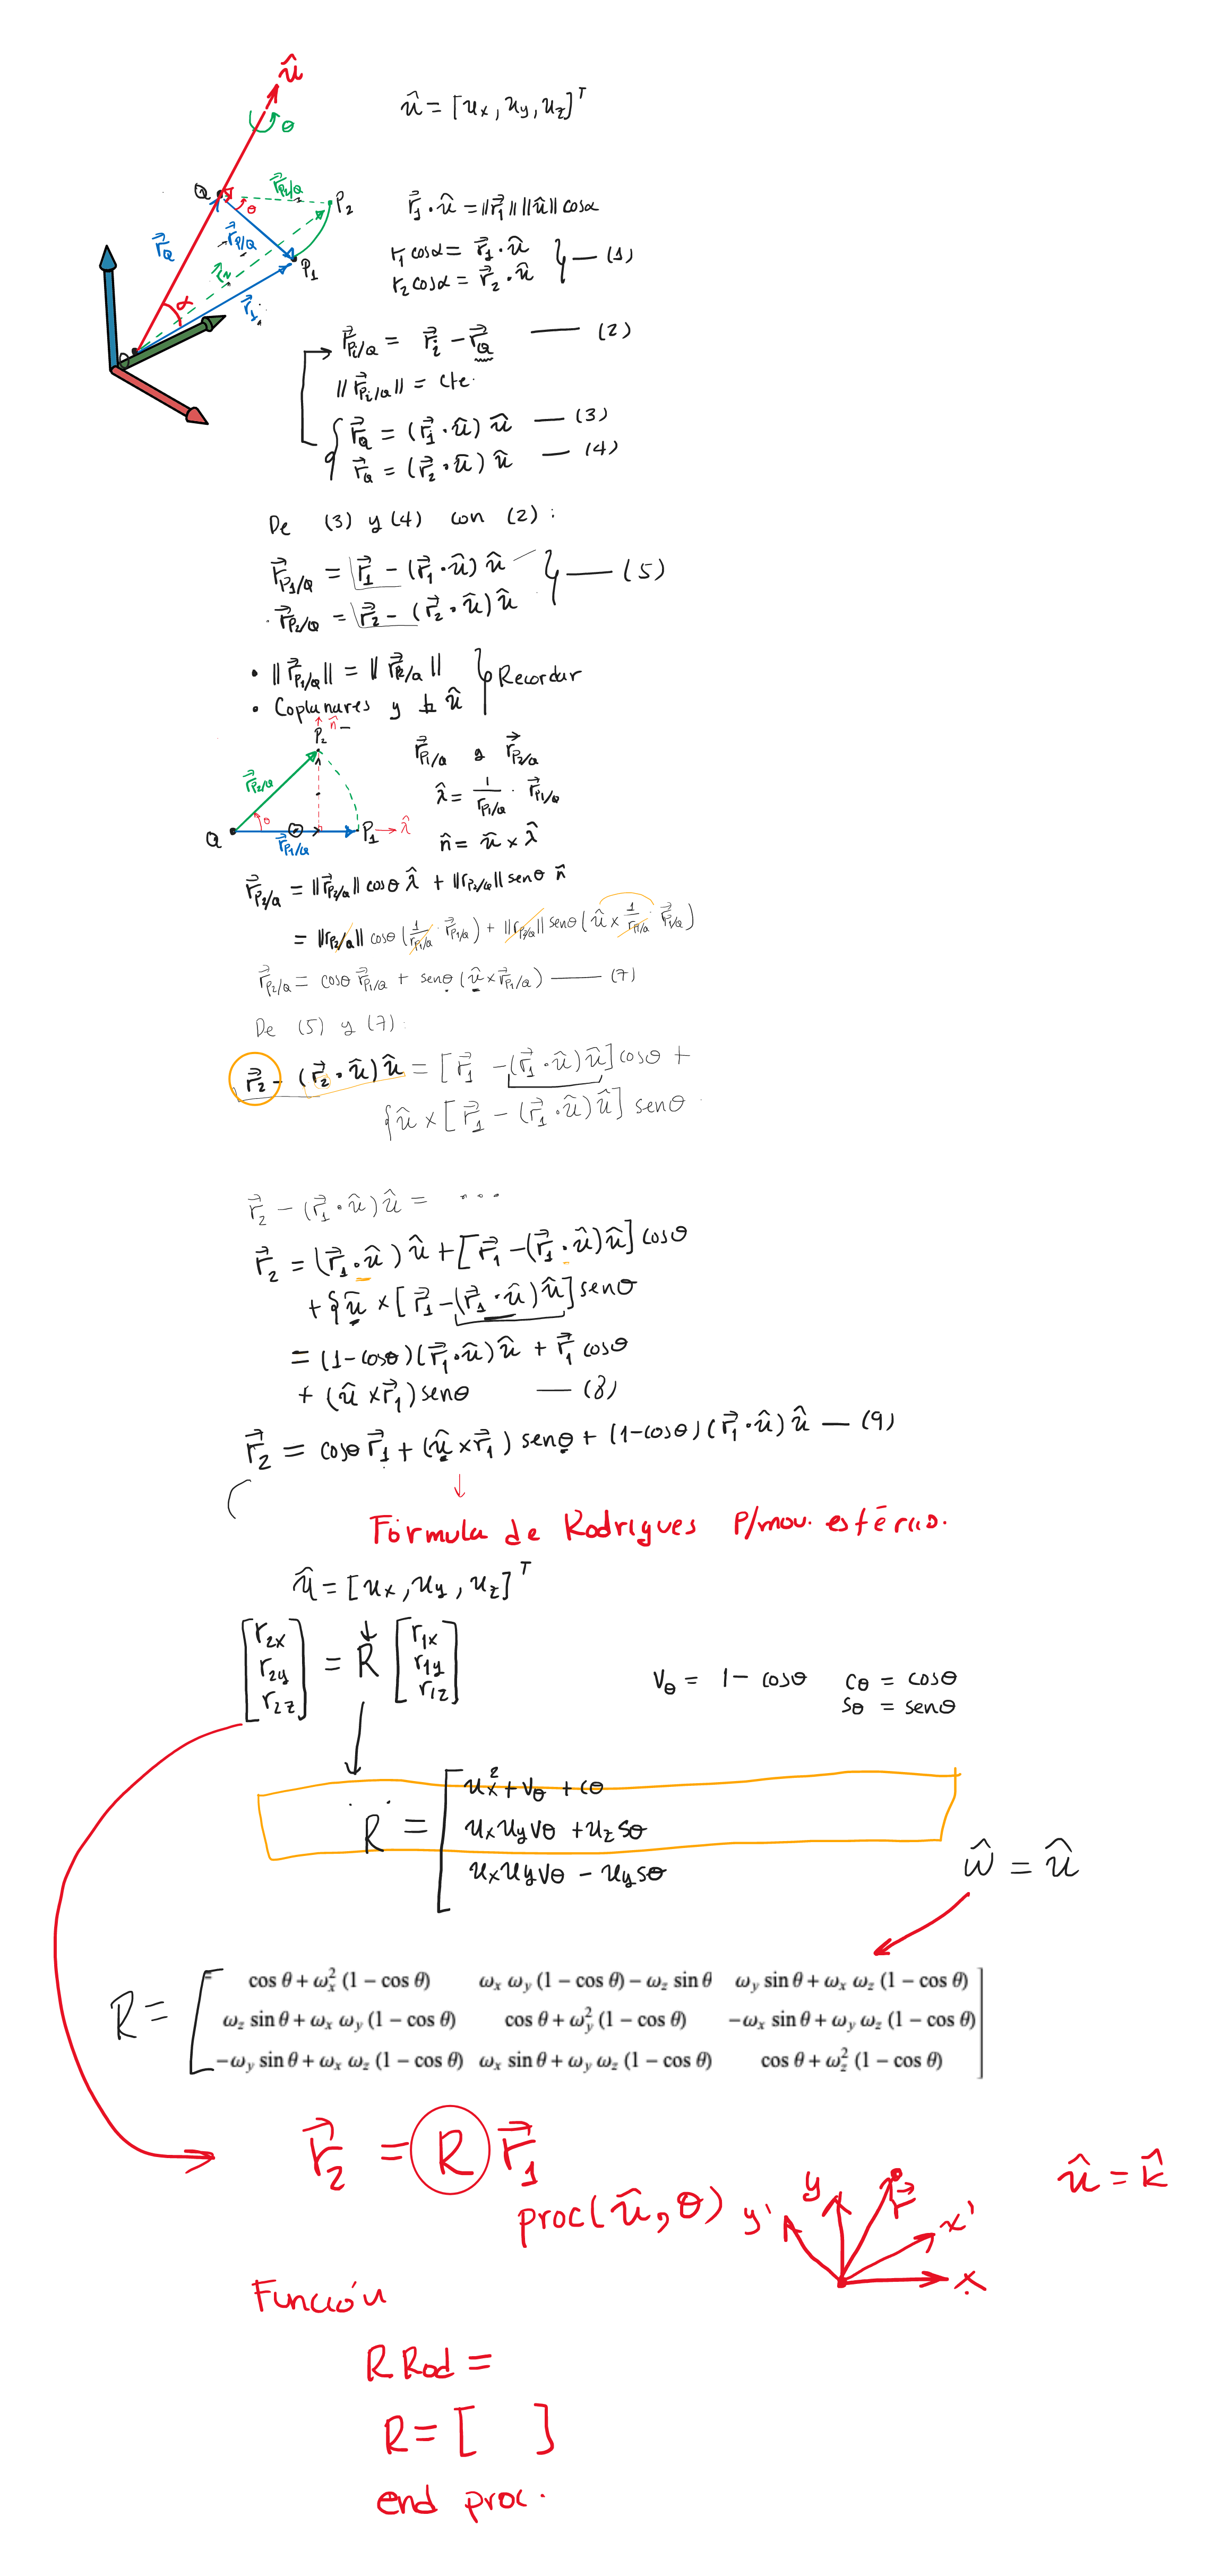 û
û = [ux, uy, uz]ᵀ
θ
Q
r⃗P₂/Q
θ
P₂
r⃗1 · û = ||r⃗1|| ||û|| cosα
r⃗Q
r⃗P/Q
r1 cosα = r⃗1 · û
P₁
r2 cosα = r⃗2 · û } — (1)
r⃗2
α
r⃗1
r⃗Pi/Q = r⃗i - r⃗Q — (2)
||r⃗Pi/Q|| = cte.
r⃗Q = (r⃗1 · û) û — (3)
r⃗Q = (r⃗2 · û) û — (4)
De (3) y (4) con (2):
r⃗P₁/Q = r⃗1 - (r⃗1 · û) û
r⃗P₂/Q = r⃗2 - (r⃗2 · û) û } — (5)
• ||r⃗P₁/Q|| = ||r⃗P₂/Q||
• Coplanares y ⊥ û } Recordar
n̂
P₂
r⃗P₁/Q y r⃗P₂/Q
r⃗P₂/Q
λ̂ = 1/rP₁/Q · r⃗P₁/Q
θ
Q
P₁
λ̂
r⃗P₁/Q
n̂ = û × λ̂
r⃗P₂/Q = ||r⃗P₂/Q|| cosθ λ̂ + ||rP₂/Q|| senθ n̂
= ||rP₂/Q|| cosθ (1/rP₁/Q · r⃗P₁/Q) + ||rP₂/Q|| senθ (û × 1/rP₁/Q · r⃗P₁/Q)
r⃗P₂/Q = cosθ r⃗P₁/Q + senθ (û × r⃗P₁/Q) — (7)
De (5) y (7):
r⃗2 - (r⃗2 · û) û = [r⃗1 - (r⃗1 · û) û] cosθ +
{û × [r⃗1 - (r⃗1 · û) û] senθ
r⃗2 - (r⃗1 · û) û = ...
r⃗2 = (r⃗1 · û) û + [r⃗1 - (r⃗1 · û) û] cosθ
+ {û × [r⃗1 - (r⃗1 · û) û] senθ
= (1-cosθ)(r⃗1 · û) û + r⃗1 cosθ
+ (û × r⃗1) senθ — (8)
r⃗2 = cosθ r⃗1 + (û × r⃗1) senθ + (1-cosθ)(r⃗1 · û) û — (9)
Fórmula de Rodrigues P/mov. esférico.
û = [ux, uy, uz]ᵀ
[r2x r2y r2z] = R [r1x r1y r1z]
vθ = 1 - cosθ cθ = cosθ
sθ = senθ
ux² + vθ + cθ
R = [ ux uy vθ + uz sθ
ux uy vθ - uy sθ
ŵ = û
cos θ + ωx² (1 − cos θ) ωx ωy (1 − cos θ) − ωz sin θ ωy sin θ + ωx ωz (1 − cos θ)
R = [ ωz sin θ + ωx ωy (1 − cos θ) cos θ + ωy² (1 − cos θ) −ωx sin θ + ωy ωz (1 − cos θ) ]
−ωy sin θ + ωx ωz (1 − cos θ) ωx sin θ + ωy ωz (1 − cos θ) cos θ + ωz² (1 − cos θ)
r⃗2 = R r⃗1
û = k̂
proc(û, θ)
y'
y
r⃗
x'
x
Función
R Rod =
R = [ ]
end proc.